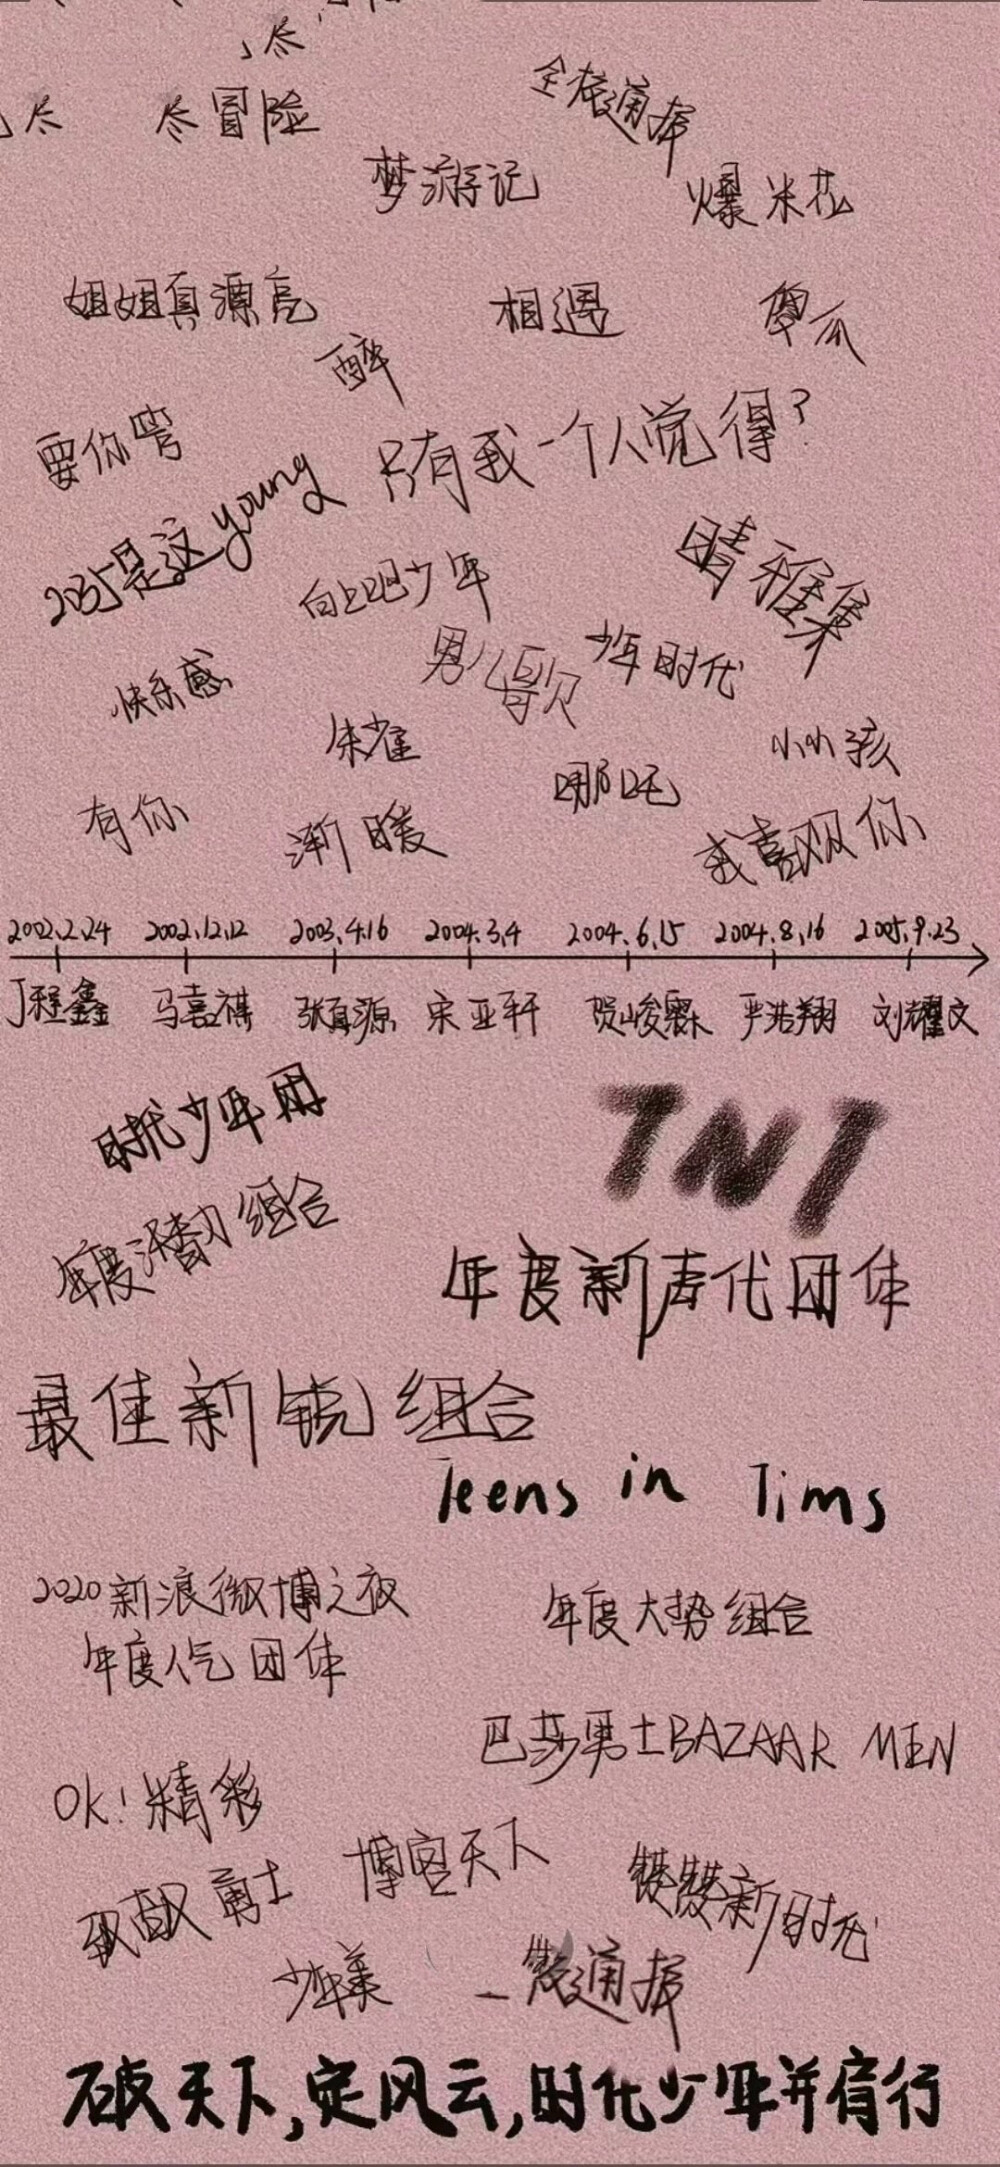 尽
尽
尽冒险
全校通报
梦游记
爆米花
姐姐真源亮
相遇
傻瓜
醉
要你管
只有我一个人觉得?
2035是这young
向上吧少年
晴雅集
男儿歌
少年时代
快乐感
朱雀
小小孩
哪吒
有你
渐暖
我喜欢你
2002.2.24 2002.12.12 2003.4.16 2004.3.4 2004.6.15 2004.8.16 2005.9.23
丁程鑫 马嘉祺 张真源 宋亚轩 贺峻霖 严浩翔 刘耀文
时代少年团
TNT
年度潜力组合
年度新声代团体
最佳新锐组合
Teens in Tims
2020新浪微博之夜
年度人气团体
年度大势组合
巴莎男士BAZAAR MEN
OK!精彩
博客天下
赞赞新时代
勇士
少年美
通报
破天下,定风云,时代少年并肩行